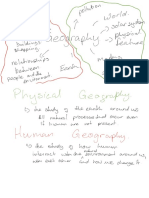 pollution
World
solar system
Physical
features
Geography
buildings
shopping
relationships
between
people and the
environment
Earth
Maps
Physical Geography
the study of the Earth around us
All natural processes that occur even
if humans are not present
Human Geography
the study of how human
interact with the environment around us,